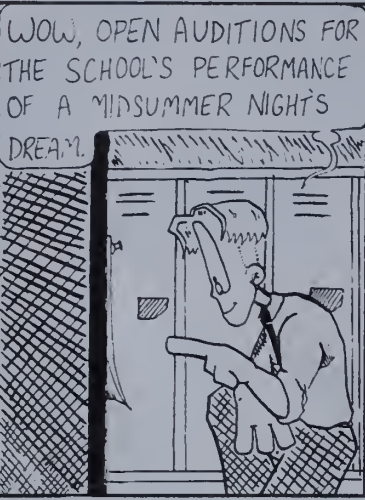 WOW, OPEN AUDITIONS FOR
THE SCHOOL'S PERFORMANCE
OF A MIDSUMMER NIGHT'S
DREAM.